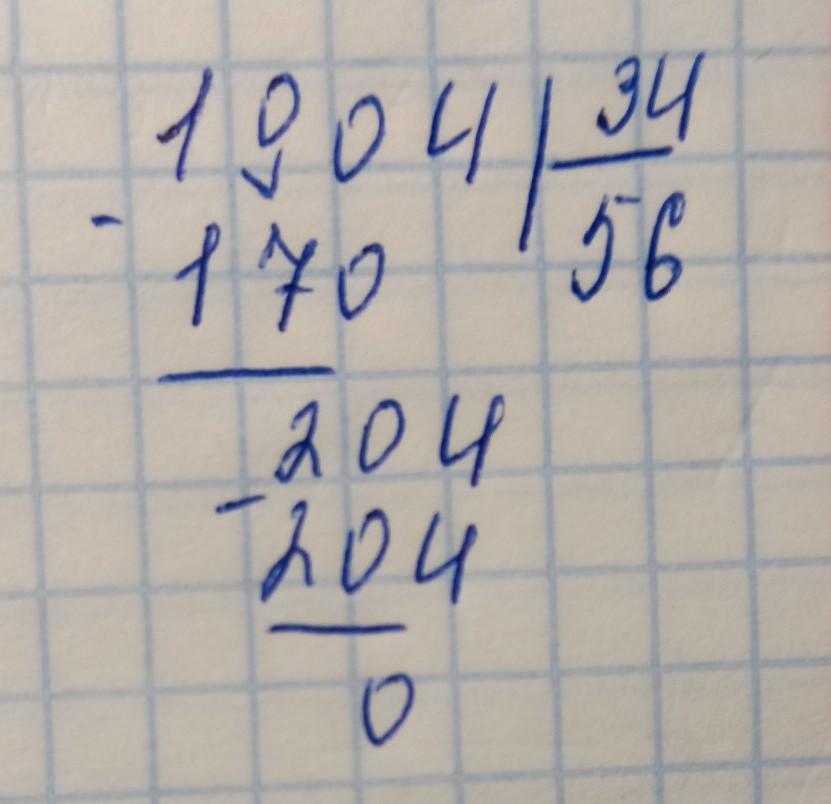 1904 34
- 170 56
204
- 204
0